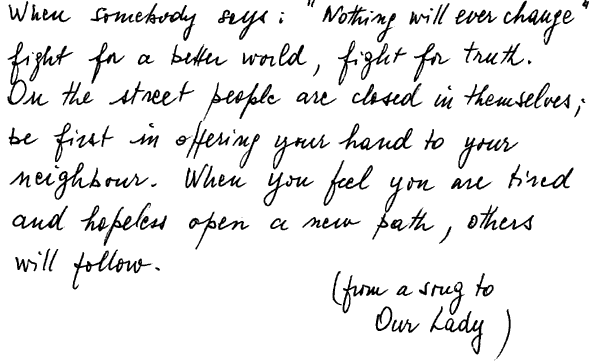 When somebody says: "Nothing will ever change"
fight for a better world, fight for truth.
On the street people are closed in themselves;
be first in offering your hand to your
neighbour. When you feel you are tired
and hopeless open a new path, others
will follow.
(from a song to
Our Lady)